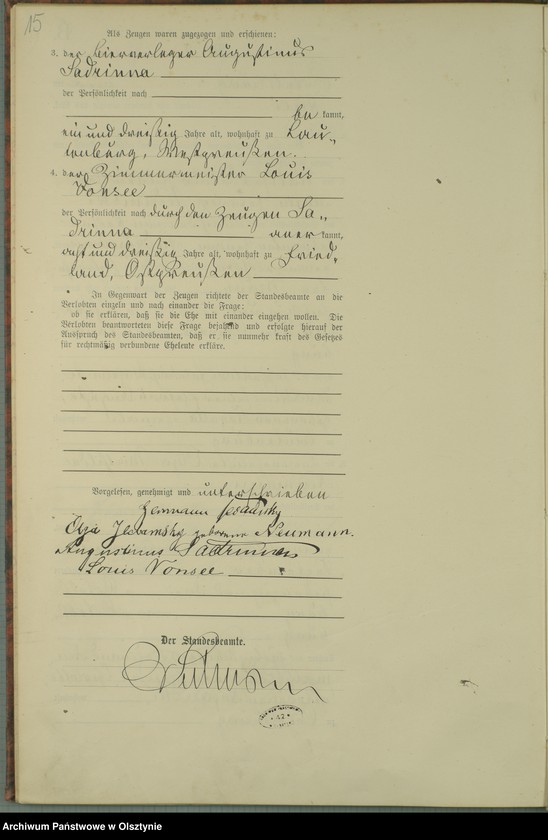 15
Als Zeugen waren zugezogen und erschienen:
3. der Bierverleger Augustinus
Sadrinna
der Persönlichkeit nach
be kannt,
ein und dreißig Jahre alt, wohnhaft zu Lau-
tenburg, Westpreußen.
4. der Zimmermeister Louis
Vonsee
der Persönlichkeit nach durch den Zeugen Sa-
drinna aner kannt,
acht und dreißig Jahre alt, wohnhaft zu Fried-
land, Ostpreußen
In Gegenwart der Zeugen richtete der Standesbeamte an die
Verlobten einzeln und nach einander die Frage:
ob sie erklären, daß sie die Ehe mit einander eingehen wollen. Die
Verlobten beantworteten diese Frage bejahend und erfolgte hierauf der
Ausspruch des Standesbeamten, daß er sie nunmehr kraft des Gesetzes
für rechtmäßig verbundene Eheleute erkläre.
Vorgelesen, genehmigt und unterschrieben
Hermann
geborene Neumann.
Augustinus Sadrinna
Louis Vonsee
Der Standesbeamte.
Archiwum Państwowe w Olsztynie